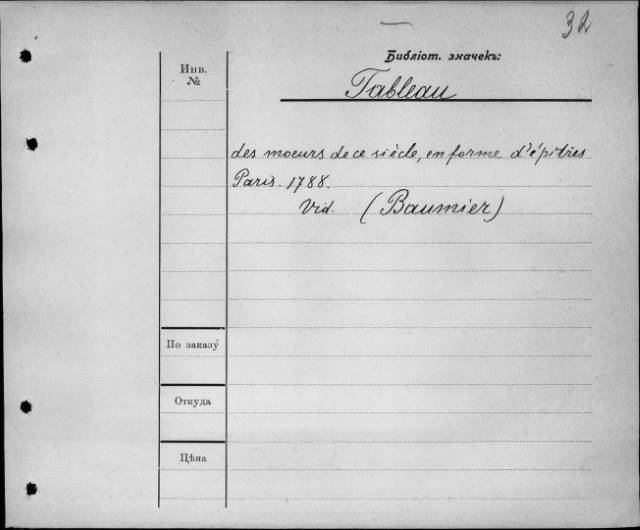 32
Библіот. значекъ:
Инв.
№
Tableau
des moeurs de ce siècle, en forme d'épitres
Paris. 1788.
Vid. (Baumier)
По заказу
Откуда
Цѣна